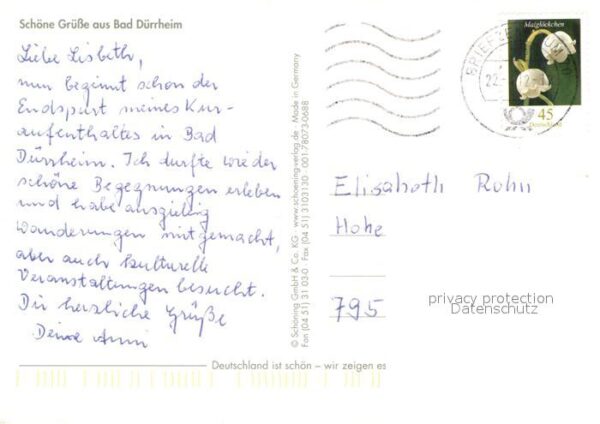 Schöne Grüße aus Bad Dürrheim
Liebe Lisbeth,
nun beginnt schon der
Endspurt meines Kur-
aufenthaltes in Bad
Dürrheim. Ich durfte wieder
schöne Begegnungen erleben
und habe ausgiebig
Wanderungen mitgemacht,
aber auch kulturelle
Veranstaltungen besucht.
Dir herzliche Grüße
Deine Anni
© Schöning GmbH & Co. KG · www.schoening-verlag.de · Made in Germany
Fon (04 51) 31 03-0 · Fax (04 51) 3103130 · 001-78073-0688
Maiglöckchen
45
Deutschland
BRIEFZENTRUM
Elisabeth Rohn
Hohe
795
privacy protection
Datenschutz
Deutschland ist schön – wir zeigen es